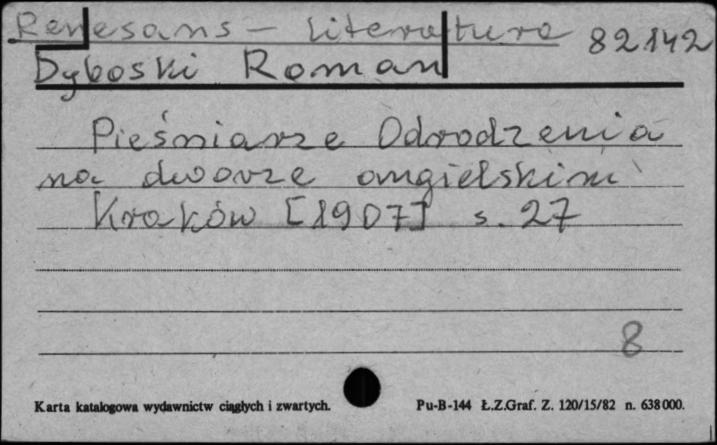 Renesans - literatura 82142
Dyboski Roman
Pieśniarze Odrodzenia
na dworze angielskim
Kraków [1907] s. 27
8
Karta katalogowa wydawnictw ciągłych i zwartych. Pu-B-144 Ł.Z.Graf. Z. 120/15/82 n. 638 000.